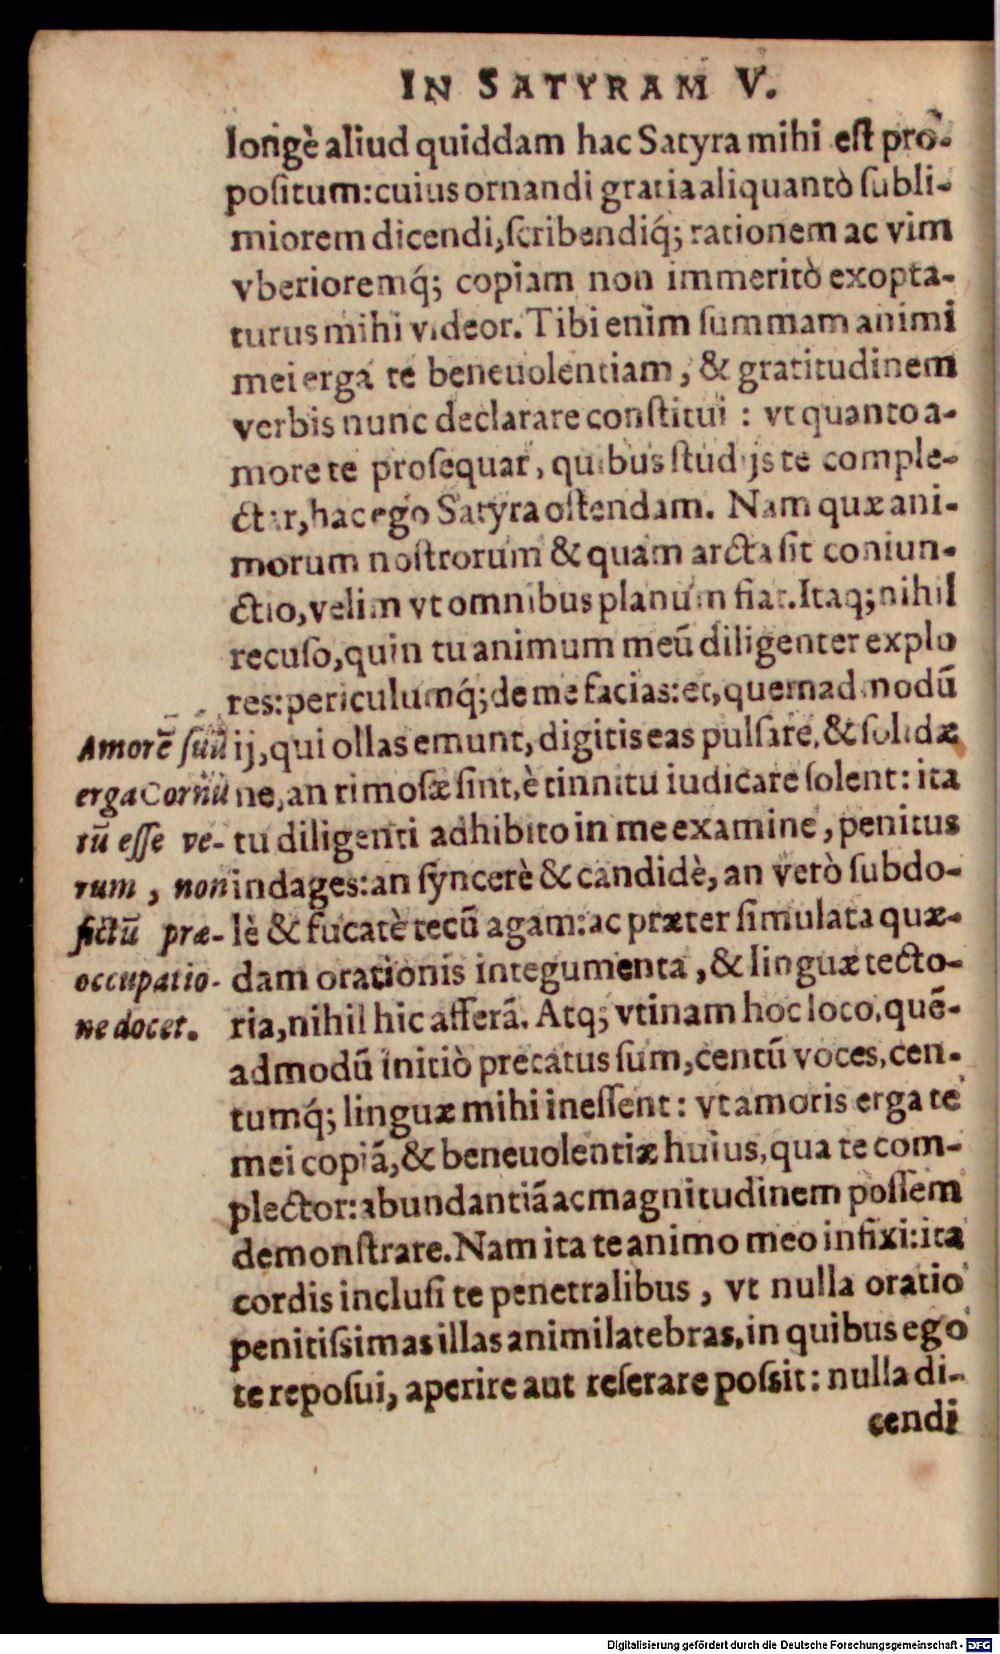 IN SATYRAM V.
longè aliud quiddam hac Satyra mihi est pro-
positum: cuius ornandi gratia aliquantò subli-
miorem dicendi, scribendiq́; rationem ac vim
vberioremq́; copiam non immeritò exopta-
turus mihi videor. Tibi enim summam animi
mei erga te beneuolentiam, & gratitudinem
verbis nunc declarare constitui: vt quanto a-
more te prosequar, quibus studijs te comple-
ctar, hac ego Satyra ostendam. Nam quæ ani-
morum nostrorum & quàm arcta sit coniun-
ctio, velim vt omnibus planum fiat. Itaq; nihil
recuso, quin tu animum meũ diligenter explo
res: periculumq́; de me facias: et, quemadmodũ
ij, qui ollas emunt, digitis eas pulsare, & solidæ
ne, an rimosæ sint, è tinnitu iudicare solent: ita
tu diligenti adhibito in me examine, penitus
indages: an syncerè & candidè, an verò subdo-
lè & fucatè tecũ agam: ac præter simulata quæ-
dam orationis integumenta, & linguæ tecto-
ria, nihil hic afferã. Atq; vtinam hoc loco, quẽ-
admodũ initiò precatus sum, centũ voces, cen-
tumq́; linguæ mihi inessent: vt amoris erga te
mei copiã, & beneuolentiæ huius, qua te com-
plector: abundantiã ac magnitudinem possem
demonstrare. Nam ita te animo meo infixi: ita
cordis inclusi te penetralibus, vt nulla oratio
penitissimas illas animi latebras, in quibus ego
te reposui, aperire aut reserare possit: nulla di-
cendi
Amorẽ suũ
erga Cornũ
tũ esse ve-
rum, non
fictũ præ-
occupatio-
ne docet.
Digitalisierung gefördert durch die Deutsche Forschungsgemeinschaft - DFG